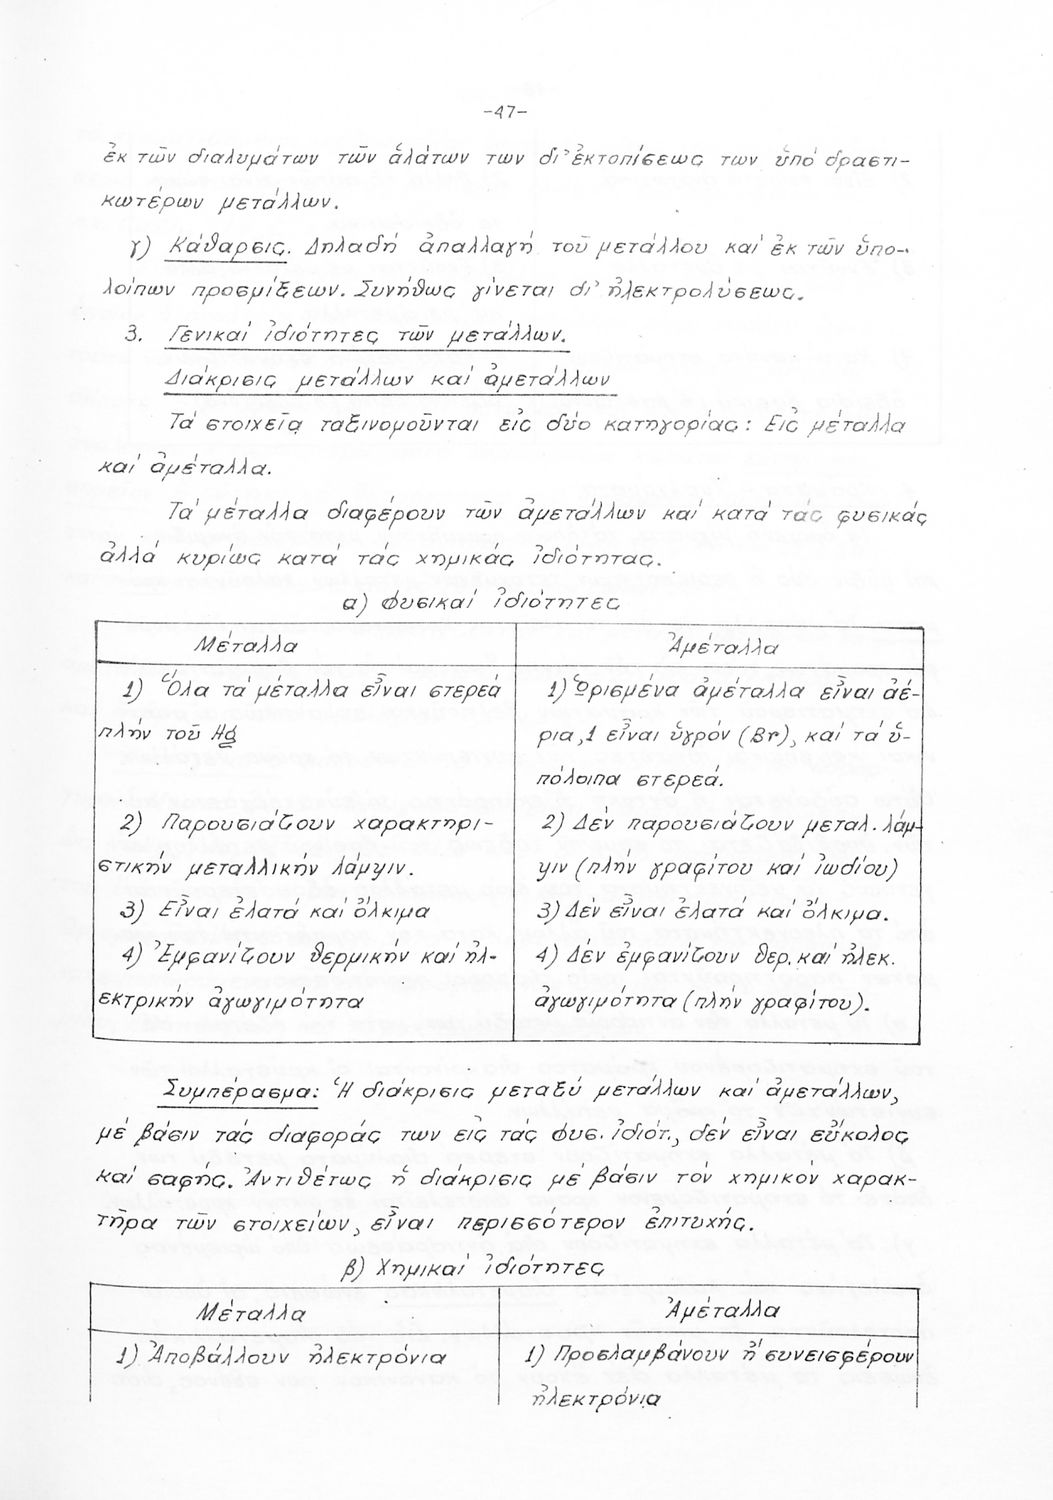 -47-
ἐκ τῶν διαλυμάτων τῶν ἁλάτων των δι' ἐκτοπίσεως των ὑπό δραστι-
κωτέρων μετάλλων.
γ) Κάθαρσις. Δηλαδή ἀπαλλαγή τοῦ μετάλλου καί ἐκ τῶν ὑπο-
λοίπων προσμίξεων. Συνήθως γίνεται δι' ἠλεκτρολύσεως.
3. Γενικαί ἰδιότητες τῶν μετάλλων.
Διάκρισις μετάλλων καί ἀμετάλλων
Τά στοιχεῖα ταξινομοῦνται εἰς δύο κατηγορίας: Εἰς μέταλλα
καί ἀμέταλλα.
Τά μέταλλα διαφέρουν τῶν ἀμετάλλων καί κατά τάς φυσικάς
ἀλλά κυρίως κατά τάς χημικάς ἰδιότητας.
α) Φυσικαί ἰδιότητες
Μέταλλα
1) Ὅλα τά μέταλλα εἶναι στερεά
πλήν τοῦ Hg
2) Παρουσιάζουν χαρακτηρι-
στικήν μεταλλικήν λάμψιν.
3) Εἶναι ἐλατά καί ὅλκιμα
4) Ἐμφανίζουν θερμικήν καί ἠλ-
εκτρικήν ἀγωγιμότητα
Ἀμέταλλα
1) Ὁρισμένα ἀμέταλλα εἶναι ἀέ-
ρια, 1 εἶναι ὑγρόν (Br), καί τά ὑ-
πόλοιπα στερεά.
2) Δέν παρουσιάζουν μεταλ. λάμ-
ψιν (πλήν γραφίτου καί ἰωδίου)
3) Δέν εἶναι ἐλατά καί ὅλκιμα.
4) Δέν ἐμφανίζουν θερ. καί ἠλεκ.
ἀγωγιμότητα (πλήν γραφίτου).
Συμπέρασμα: Ἡ διάκρισις μεταξύ μετάλλων καί ἀμετάλλων,
μέ βάσιν τάς διαφοράς των εἰς τάς φυσ. ἰδιότ., δέν εἶναι εὔκολος
καί σαφής. Ἀντιθέτως ἡ διάκρισις μέ βάσιν τόν χημικόν χαρακ-
τῆρα τῶν στοιχείων, εἶναι περισσότερον ἐπιτυχής.
β) Χημικαί ἰδιότητες
Μέταλλα
1) Ἀποβάλλουν ἠλεκτρόνια
Ἀμέταλλα
1) Προσλαμβάνουν ἤ συνεισφέρουν
ἠλεκτρόνια